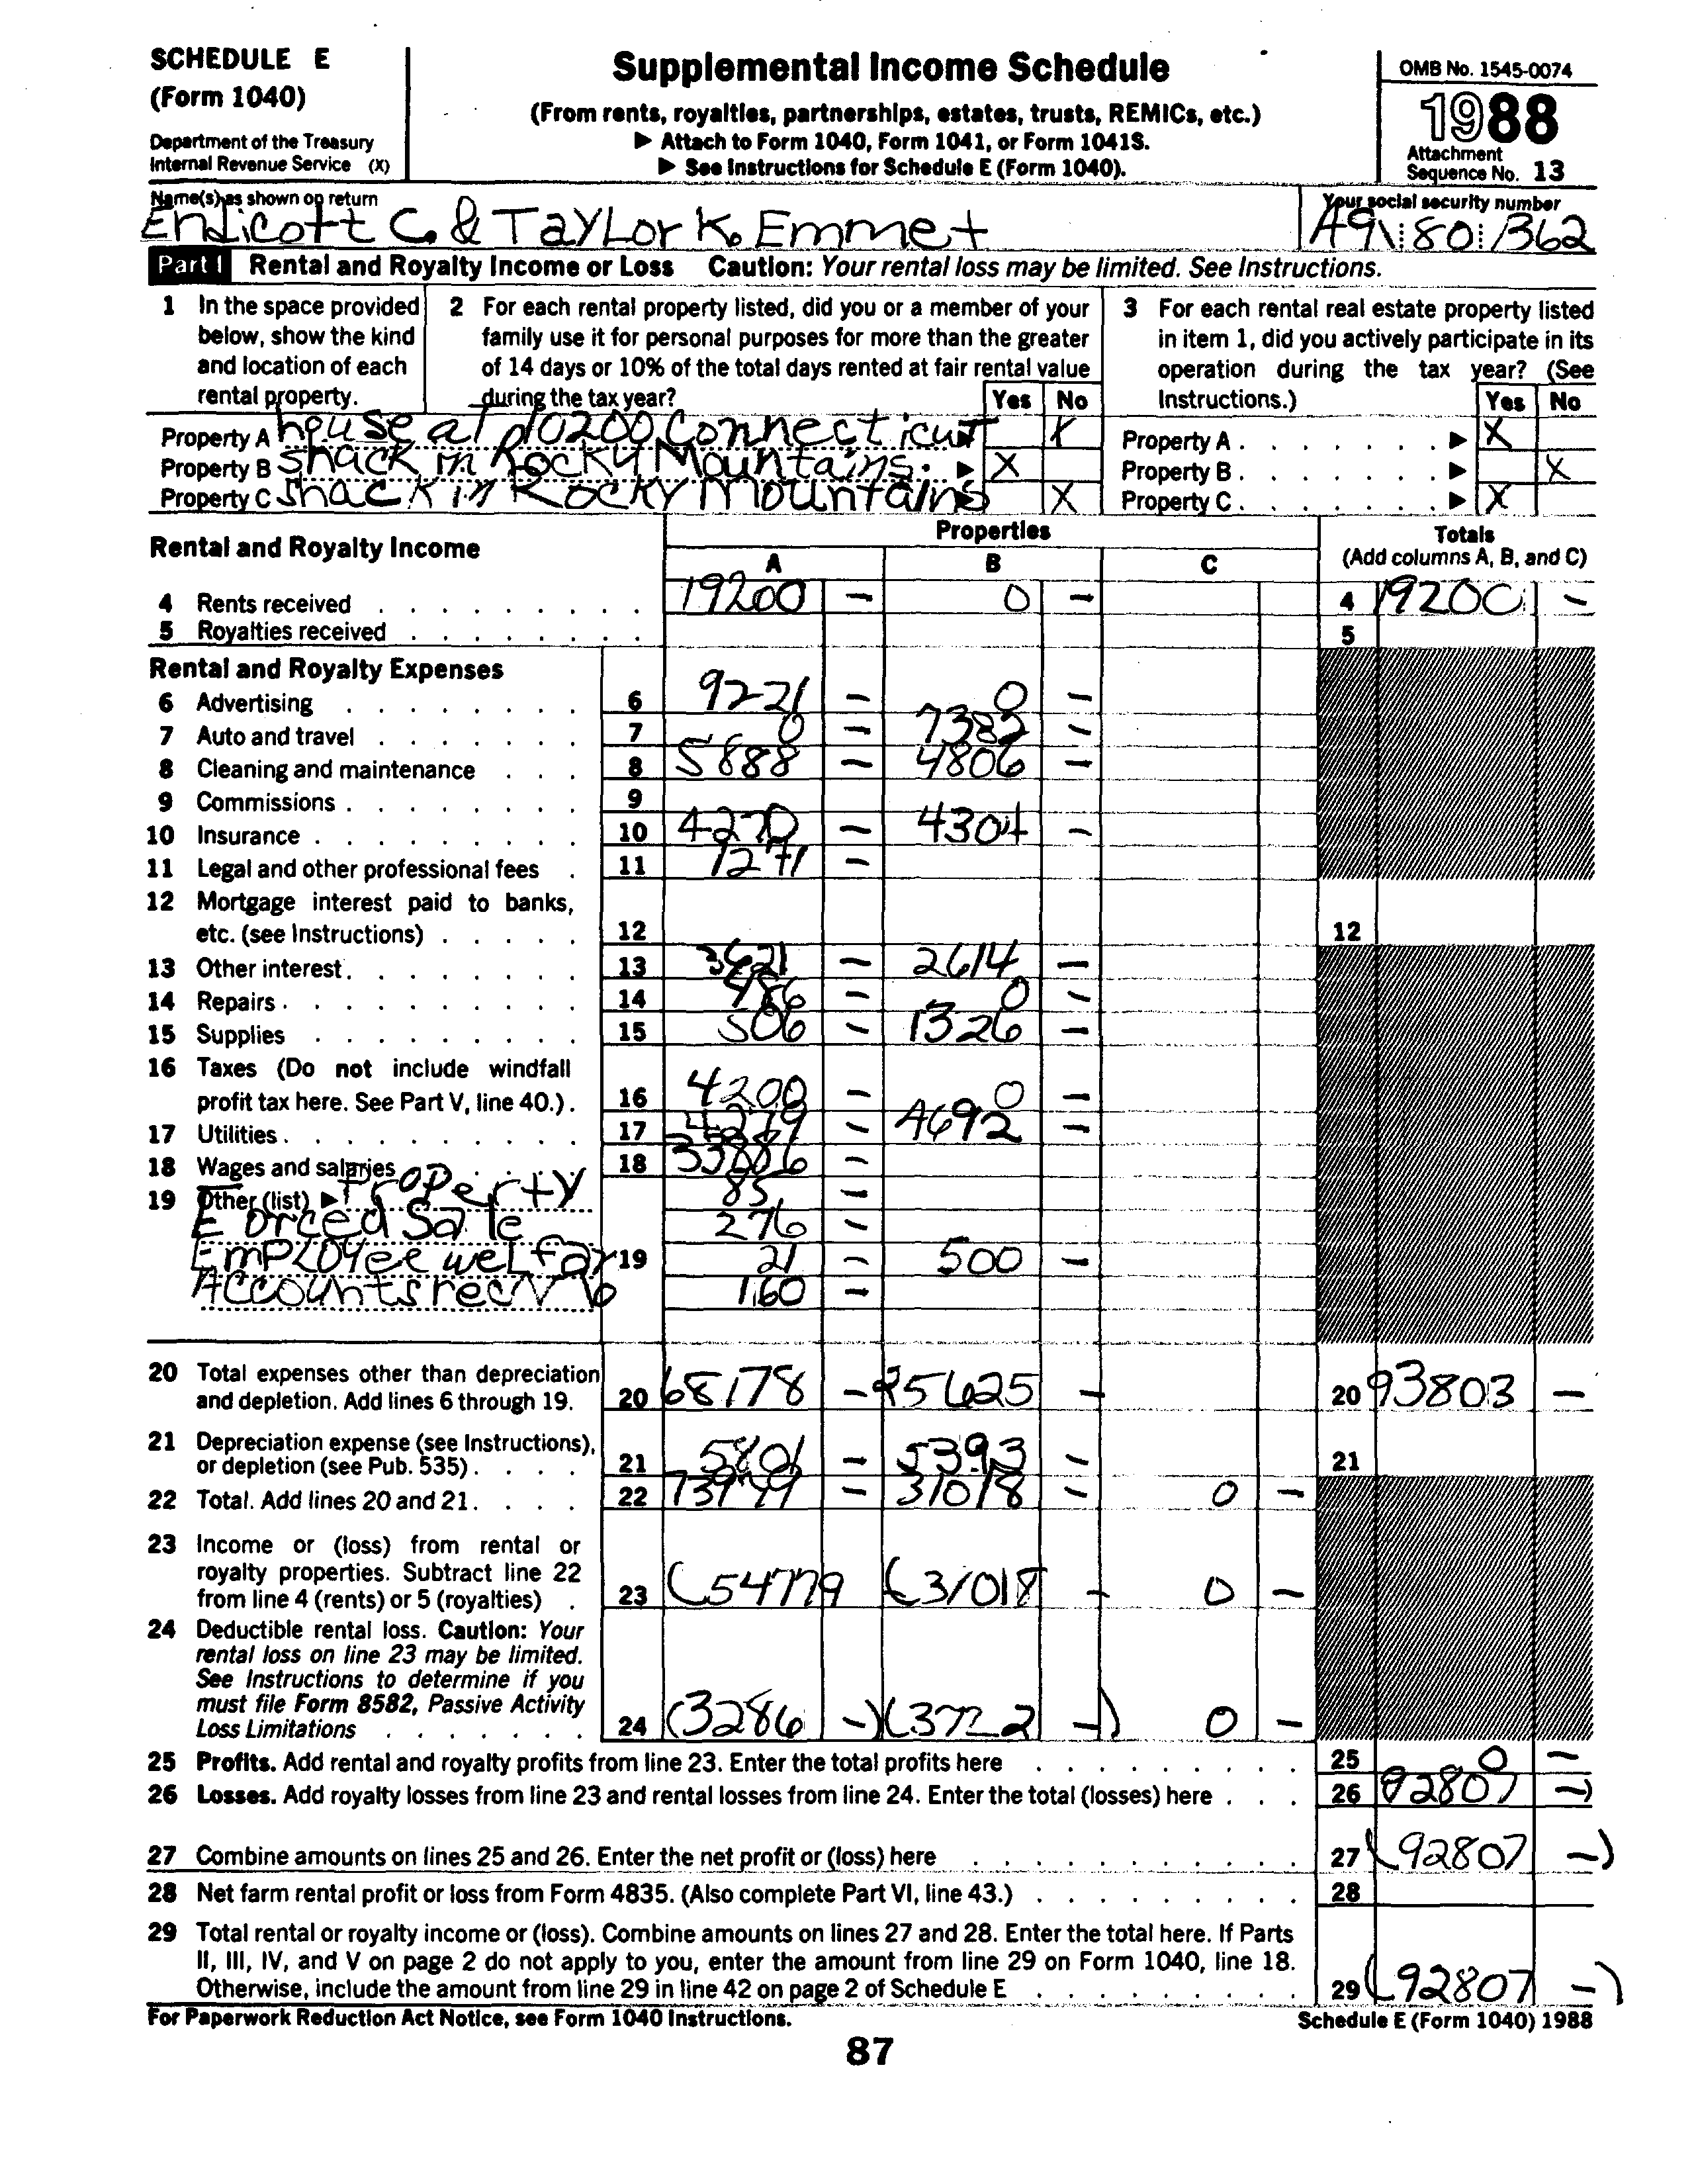 SCHEDULE E
(Form 1040)
Department of the Treasury
Internal Revenue Service (X)
Supplemental Income Schedule
(From rents, royalties, partnerships, estates, trusts, REMICs, etc.)
▶ Attach to Form 1040, Form 1041, or Form 1041S.
▶ See Instructions for Schedule E (Form 1040).
OMB No. 1545-0074
1988
Attachment
Sequence No. 13
Name(s) as shown on return
Endicott C. & Taylor K. Emmet
Your social security number
80 362
Part I Rental and Royalty Income or Loss Caution: Your rental loss may be limited. See Instructions.
1 In the space provided
below, show the kind
and location of each
rental property.
2 For each rental property listed, did you or a member of your
family use it for personal purposes for more than the greater
of 14 days or 10% of the total days rented at fair rental value
during the tax year? Yes No
3 For each rental real estate property listed
in item 1, did you actively participate in its
operation during the tax year? (See
Instructions.) Yes No
Property A house at 10200 Connecticut ▶ X
Property B Shack in Rocky Mountains ▶ X
Property C Shack in Rocky Mountains ▶ X
Property A . . . . . . . ▶ X
Property B . . . . . . . ▶ X
Property C . . . . . . . ▶ X
Rental and Royalty Income
Properties
A B C
Totals
(Add columns A, B, and C)
4 Rents received 19200 – 0 – 4 19200 –
5 Royalties received 5
Rental and Royalty Expenses
6 Advertising 6 9221 – 0 –
7 Auto and travel 7 0 – 7383 –
8 Cleaning and maintenance 8 5888 – 4806 –
9 Commissions 9
10 Insurance 10 4270 – 4304 –
11 Legal and other professional fees 11 1271 –
12 Mortgage interest paid to banks,
etc. (see Instructions) 12 12
13 Other interest 13 3421 – 2614 –
14 Repairs 14 – 0 –
15 Supplies 15 506 – 1326 –
16 Taxes (Do not include windfall
profit tax here. See Part V, line 40.) 16 4200 – 0 –
17 Utilities 17 – 4692 –
18 Wages and salaries 18 –
19 Other (list) ▶ Property 85 –
Forced Sale 276 –
Employee welfar 19 21 – 500 –
Accounts recvb 160 –
20 Total expenses other than depreciation
and depletion. Add lines 6 through 19. 20 68178 – 25625 – 20 93803 –
21 Depreciation expense (see Instructions),
or depletion (see Pub. 535) 21 5801 – 5393 – 21
22 Total. Add lines 20 and 21 22 73979 – 31018 – 0 –
23 Income or (loss) from rental or
royalty properties. Subtract line 22
from line 4 (rents) or 5 (royalties) 23 (54779 (31018 – 0 –
24 Deductible rental loss. Caution: Your
rental loss on line 23 may be limited.
See Instructions to determine if you
must file Form 8582, Passive Activity
Loss Limitations 24 (3286 –) (3722 –) 0 –
25 Profits. Add rental and royalty profits from line 23. Enter the total profits here 25 0 –
26 Losses. Add royalty losses from line 23 and rental losses from line 24. Enter the total (losses) here 26 92807 –)
27 Combine amounts on lines 25 and 26. Enter the net profit or (loss) here 27 (92807 –)
28 Net farm rental profit or loss from Form 4835. (Also complete Part VI, line 43.) 28
29 Total rental or royalty income or (loss). Combine amounts on lines 27 and 28. Enter the total here. If Parts
II, III, IV, and V on page 2 do not apply to you, enter the amount from line 29 on Form 1040, line 18.
Otherwise, include the amount from line 29 in line 42 on page 2 of Schedule E 29 (92807 –)
For Paperwork Reduction Act Notice, see Form 1040 Instructions.
Schedule E (Form 1040) 1988
87